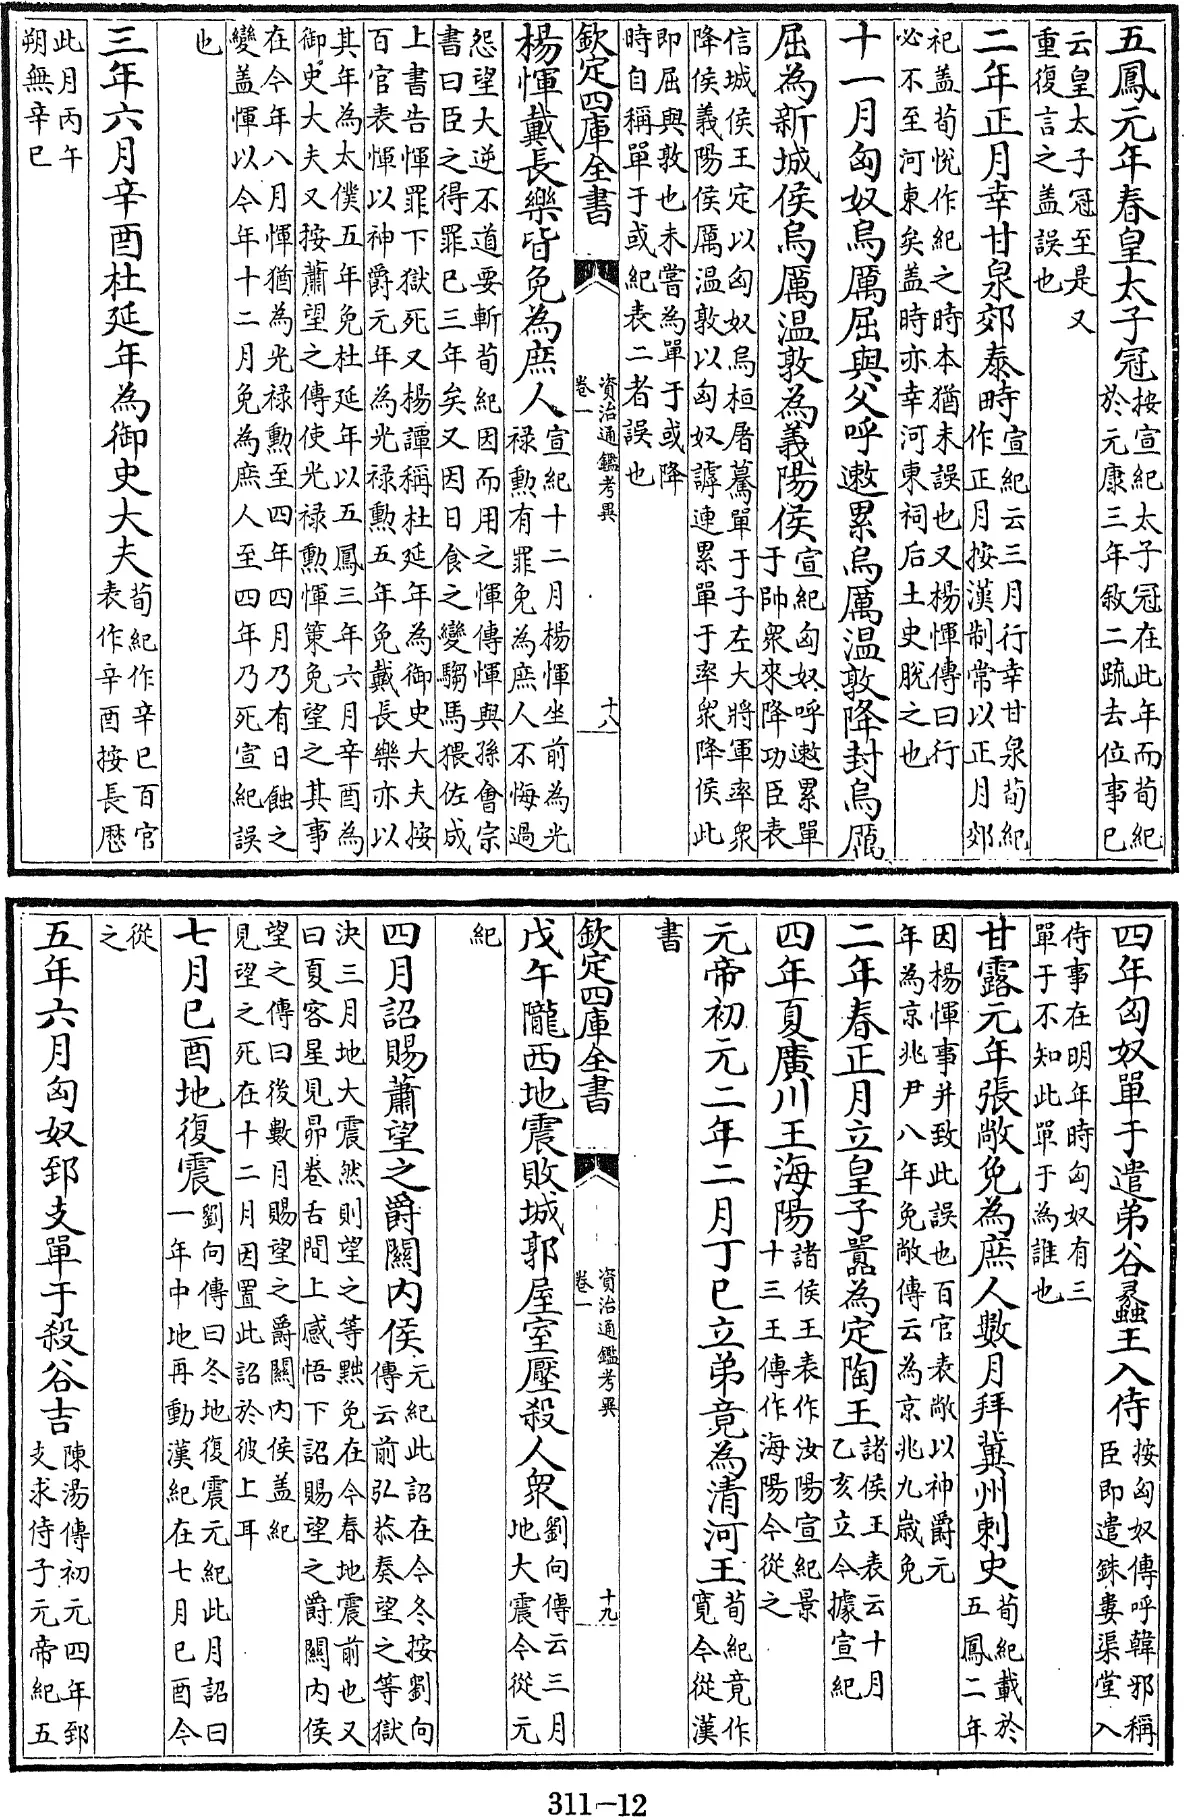 五鳳元年春皇太子冠按宣紀太子冠在此年而荀紀於元康三年敘二疏去位事已
云皇太子冠至是又重復言之蓋誤也
二年正月幸甘泉郊泰畤宣紀云三月行幸甘泉荀紀作正月按漢制常以正月郊
祀蓋荀悅作紀之時本猶未誤也又楊惲傳曰行必不至河東矣蓋時亦幸河東祠后土史脫之也
十一月匈奴烏厲屈與父呼遬累烏厲温敦降封烏厲
屈為新城侯烏厲温敦為義陽侯宣紀匈奴呼遬累單于帥衆來降功臣表
信城侯王定以匈奴烏桓屠驀單于子左大將軍率衆降侯義陽侯厲温敦以匈奴謼連累單于率衆降侯此
即屈與敦也未嘗為單于或降時自稱單于或紀表二者誤也
欽定四庫全書 資治通鑑考異 卷一 十八
楊惲戴長樂皆免為庶人宣紀十二月楊惲坐前為光祿勲有罪免為庶人不悔過
怨望大逆不道要斬荀紀因而用之惲傳惲與孫會宗書曰臣之得罪已三年矣又因日食之變騶馬猥佐成
上書告惲罪下獄死又楊譚稱杜延年為御史大夫按百官表惲以神爵元年為光祿勲五年免戴長樂亦以
其年為太僕五年免杜延年以五鳳三年六月辛酉為御史大夫又按蕭望之傳使光祿勲惲策免望之其事
在今年八月惲猶為光祿勲至四年四月乃有日蝕之變蓋惲以今年十二月免為庶人至四年乃死宣紀誤
也
三年六月辛酉杜延年為御史大夫荀紀作辛巳百官表作辛酉按長厯
此月丙午朔無辛巳
四年匈奴單于遣弟谷蠡王入侍按匈奴傳呼韓邪稱臣即遣銖婁渠堂入
侍事在明年時匈奴有三單于不知此單于為誰也
甘露元年張敞免為庶人數月拜冀州刺史荀紀載於五鳳二年
因楊惲事并致此誤也百官表敞以神爵元年為京兆尹八年免敞傳云為京兆九歲免
二年春正月立皇子囂為定陶王諸侯王表云十月乙亥立今據宣紀
四年夏廣川王海陽諸侯王表作汝陽宣紀景十三王傳作海陽今從之
元帝初元二年二月丁巳立弟竟為清河王荀紀竟作寛今從漢
書
欽定四庫全書 資治通鑑考異 卷一 十九
戊午隴西地震敗城郭屋室壓殺人衆劉向傳云三月地大震今從元
紀
四月詔賜蕭望之爵關內侯元紀此詔在今冬按劉向傳云前弘恭奏望之等獄
決三月地大震然則望之等黜免在今春地震前也又曰夏客星見昴卷舌間上感悟下詔賜望之爵關內侯
望之傳曰後數月賜望之爵關內侯蓋紀見望之死在十二月因置此詔於彼上耳
七月已酉地復震劉向傳曰冬地復震元紀此月詔曰一年中地再動漢紀在七月已酉今
從之
五年六月匈奴郅支單于殺谷吉陳湯傳初元四年郅支求侍子元帝紀五
311-12